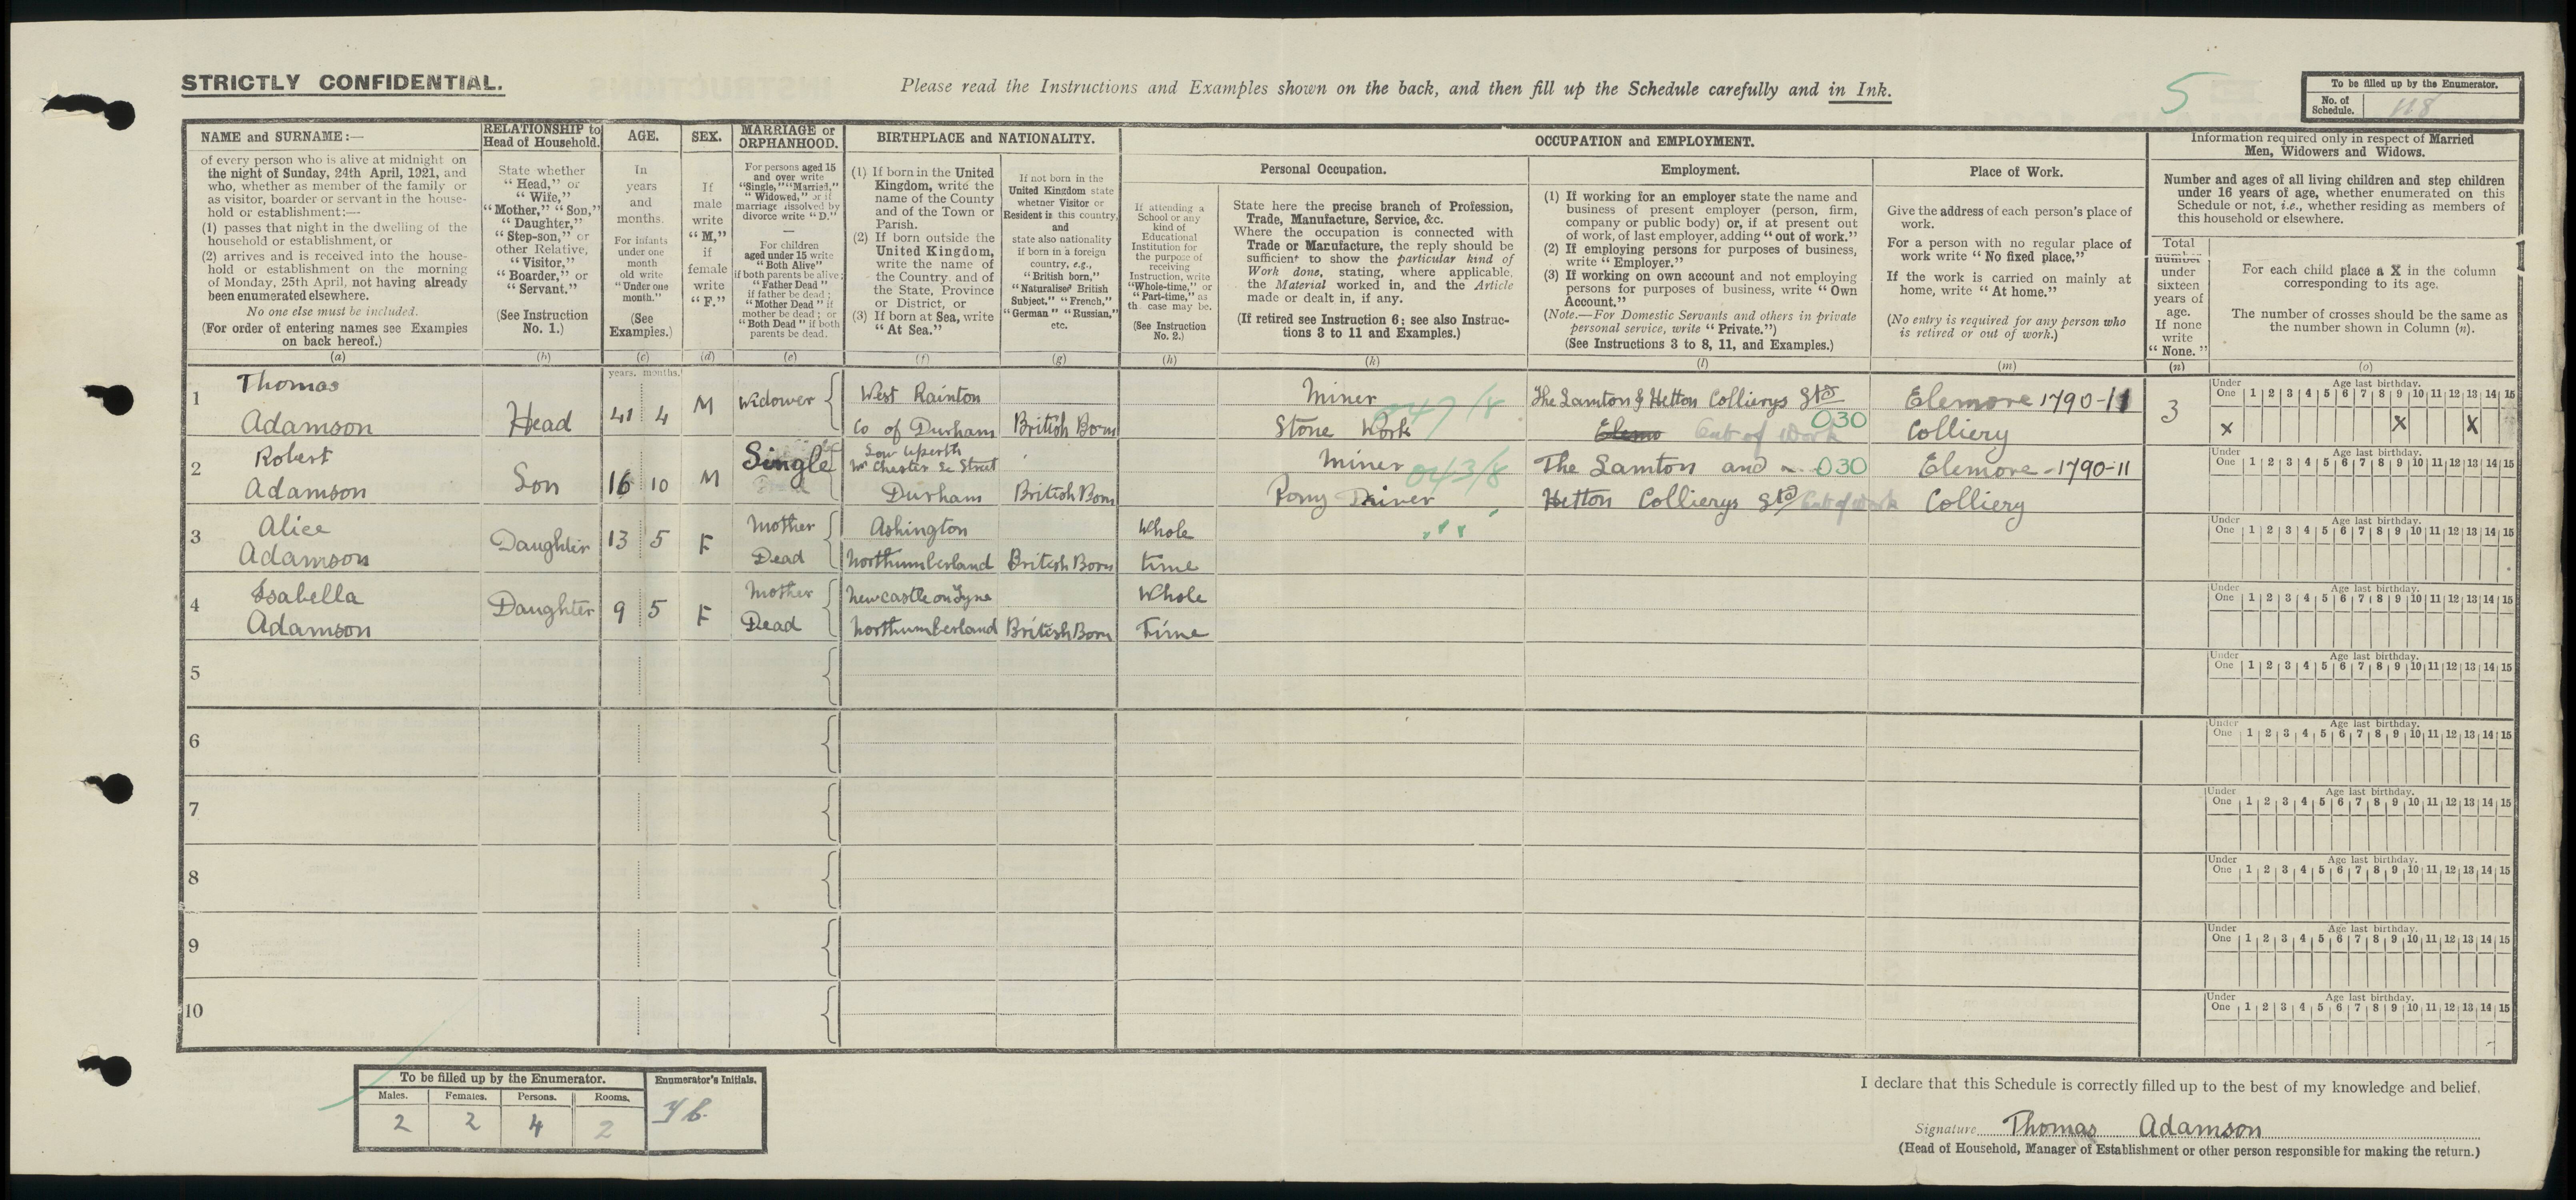 STRICTLY CONFIDENTIAL.
Please read the Instructions and Examples shown on the back, and then fill up the Schedule carefully and in Ink.
5
To be filled up by the Enumerator.
No. of Schedule.
NAME and SURNAME:—
of every person who is alive at midnight on
the night of Sunday, 24th April, 1921, and
who, whether as member of the family or
as visitor, boarder or servant in the house-
hold or establishment:—
(1) passes that night in the dwelling of the
household or establishment, or
(2) arrives and is received into the house-
hold or establishment on the morning
of Monday, 25th April, not having already
been enumerated elsewhere.
No one else must be included.
(For order of entering names see Examples
on back hereof.)
(a)
RELATIONSHIP to
Head of Household.
State whether
"Head," or
"Wife,"
"Mother," "Son,"
"Daughter,"
"Step-son," or
other Relative,
"Visitor,"
"Boarder," or
"Servant."
(See Instruction
No. 1.)
(b)
AGE.
In
years
and
months.
For infants
under one
month
old write
"Under one
month."
(See
Examples.)
(c)
SEX.
If
male
write
"M,"
if
female
write
"F."
(d)
MARRIAGE or
ORPHANHOOD.
For persons aged 15
and over write
"Single," "Married,"
"Widowed," or if
marriage dissolved by
divorce write "D."
—
For children
aged under 15 write
"Both Alive"
if both parents be alive;
"Father Dead"
if father be dead;
"Mother Dead" if
mother be dead; or
"Both Dead" if both
parents be dead.
(e)
BIRTHPLACE and NATIONALITY.
(1) If born in the United
Kingdom, write the
name of the County
and of the Town or
Parish.
(2) If born outside the
United Kingdom,
write the name of
the Country, and of
the State, Province
or District, or
(3) If born at Sea, write
"At Sea."
(f)
If not born in the
United Kingdom state
whether Visitor or
Resident is this country,
and
state also nationality
if born in a foreign
country, e.g.,
"British born,"
"Naturalised British
Subject," "French,"
"German" "Russian,"
etc.
(g)
OCCUPATION and EMPLOYMENT.
If attending a
School or any
kind of
Educational
Institution for
the purpose of
receiving
Instruction, write
"Whole-time," or
"Part-time," as
th case may be.
(See Instruction
No. 2.)
(h)
Personal Occupation.
State here the precise branch of Profession,
Trade, Manufacture, Service, &c.
Where the occupation is connected with
Trade or Manufacture, the reply should be
sufficient to show the particular kind of
Work done, stating, where applicable,
the Material worked in, and the Article
made or dealt in, if any.
(If retired see Instruction 6; see also Instruc-
tions 3 to 11 and Examples.)
(k)
Employment.
(1) If working for an employer state the name and
business of present employer (person, firm,
company or public body) or, if at present out
of work, of last employer, adding "out of work."
(2) If employing persons for purposes of business,
write "Employer."
(3) If working on own account and not employing
persons for purposes of business, write "Own
Account."
(Note.—For Domestic Servants and others in private
personal service, write "Private.")
(See Instructions 3 to 8, 11, and Examples.)
(l)
Place of Work.
Give the address of each person's place of
work.
For a person with no regular place of
work write "No fixed place."
If the work is carried on mainly at
home, write "At home."
(No entry is required for any person who
is retired or out of work.)
(m)
Information required only in respect of Married
Men, Widowers and Widows.
Number and ages of all living children and step children
under 16 years of age, whether enumerated on this
Schedule or not, i.e., whether residing as members of
this household or elsewhere.
Total
number
under
sixteen
years of
age.
If none
write
"None."
(n)
For each child place a X in the column
corresponding to its age.
The number of crosses should be the same as
the number shown in Column (n).
(o)
years. months.
1 Thomas Adamson
Head 41 4 M Widower
West Rainton
Co of Durham British Born
Miner
Stone Work 047/8
The Lamton & Hetton Collierys Ltd
Elemo Out of Work 030
Elemore 1790-11
Colliery
3
Under One 1 2 3 4 5 6 7 8 9 10 11 12 13 14 15
Age last birthday.
X X X
2 Robert Adamson
Son 16 10 M Single
Nr Chester Le Street
Durham British Born
Miner 043/8
Pony Driver
The Lamton and 030
Hetton Collierys Ltd Out of Work
Elemore - 1790-11
Colliery
Under One 1 2 3 4 5 6 7 8 9 10 11 12 13 14 15
Age last birthday.
3 Alice Adamson
Daughter 13 5 F Mother Dead
Ashington
Northumberland British Born
Whole time
Under One 1 2 3 4 5 6 7 8 9 10 11 12 13 14 15
Age last birthday.
4 Isabella Adamson
Daughter 9 5 F Mother Dead
Newcastle on Tyne
Northumberland British Born
Whole Time
Under One 1 2 3 4 5 6 7 8 9 10 11 12 13 14 15
Age last birthday.
5
Under One 1 2 3 4 5 6 7 8 9 10 11 12 13 14 15
Age last birthday.
6
Under One 1 2 3 4 5 6 7 8 9 10 11 12 13 14 15
Age last birthday.
7
Under One 1 2 3 4 5 6 7 8 9 10 11 12 13 14 15
Age last birthday.
8
Under One 1 2 3 4 5 6 7 8 9 10 11 12 13 14 15
Age last birthday.
9
Under One 1 2 3 4 5 6 7 8 9 10 11 12 13 14 15
Age last birthday.
10
Under One 1 2 3 4 5 6 7 8 9 10 11 12 13 14 15
Age last birthday.
To be filled up by the Enumerator.
Males. Females. Persons. Rooms.
2 2 4 2
Enumerator's Initials.
I declare that this Schedule is correctly filled up to the best of my knowledge and belief.
Signature Thomas Adamson
(Head of Household, Manager of Establishment or other person responsible for making the return.)